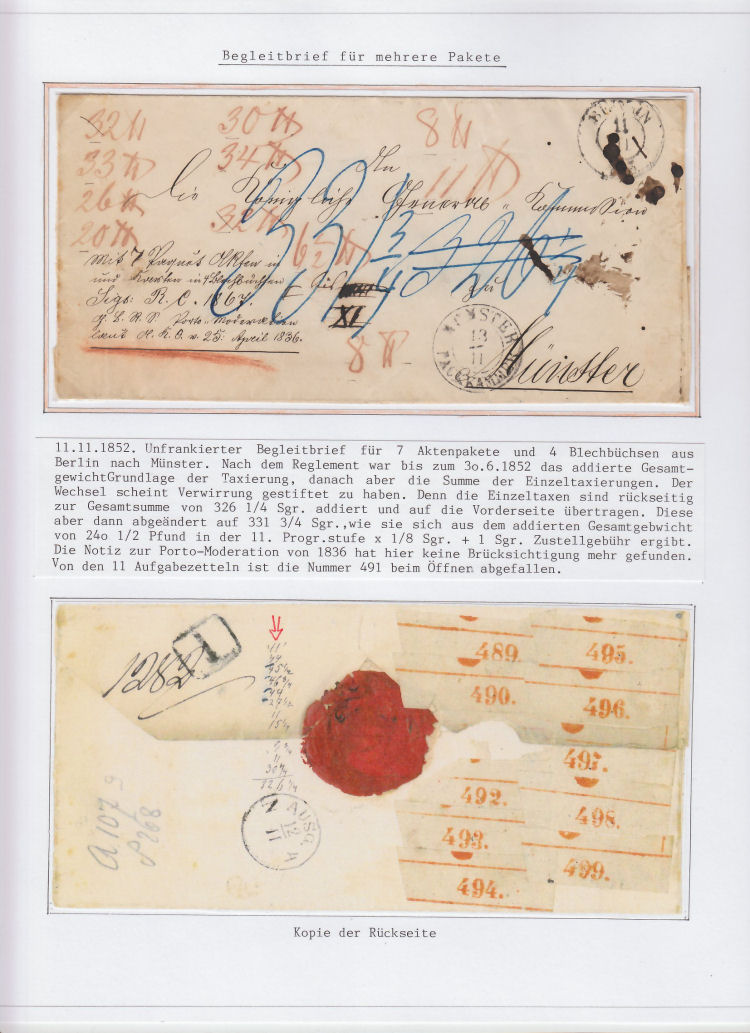 Begleitbrief für mehrere Pakete
32 ℔
30 ℔
8 ℔
BERLIN
11
33 ℔
34 ℔
11 ℔
An
26 ℔
Die Königliche General-Kommission
20 ℔
32 ℔
6½ ℔
331¾
326¼
Mit 7 Paquet Akten in
und Karten in 4 Blechbüchsen
XI
zu
laut A.K.O. v. 25. April 1836.
8 ℔
MÜNSTER
13
11
PACKKAMMER
Münster
11.11.1852. Unfrankierter Begleitbrief für 7 Aktenpakete und 4 Blechbüchsen aus
Berlin nach Münster. Nach dem Reglement war bis zum 3o.6.1852 das addierte Gesamt-
gewichtGrundlage der Taxierung, danach aber die Summe der Einzeltaxierungen. Der
Wechsel scheint Verwirrung gestiftet zu haben. Denn die Einzeltaxen sind rückseitig
zur Gesamtsumme von 326 1/4 Sgr. addiert und auf die Vorderseite übertragen. Diese
aber dann abgeändert auf 331 3/4 Sgr.,wie sie sich aus dem addierten Gesamtgebwicht
von 24o 1/2 Pfund in der 11. Progr.stufe x 1/8 Sgr. + 1 Sgr. Zustellgebühr ergibt.
Die Notiz zur Porto-Moderation von 1836 hat hier keine Brücksichtigung mehr gefunden.
Von den 11 Aufgabezetteln ist die Nummer 491 beim Öffnen abgefallen.
1
1282
11
44
44
11
11
489.
495.
490.
496.
497.
492.
498.
493.
499.
494.
AUSG.
12
11
A 107 9
P 268
Kopie der Rückseite